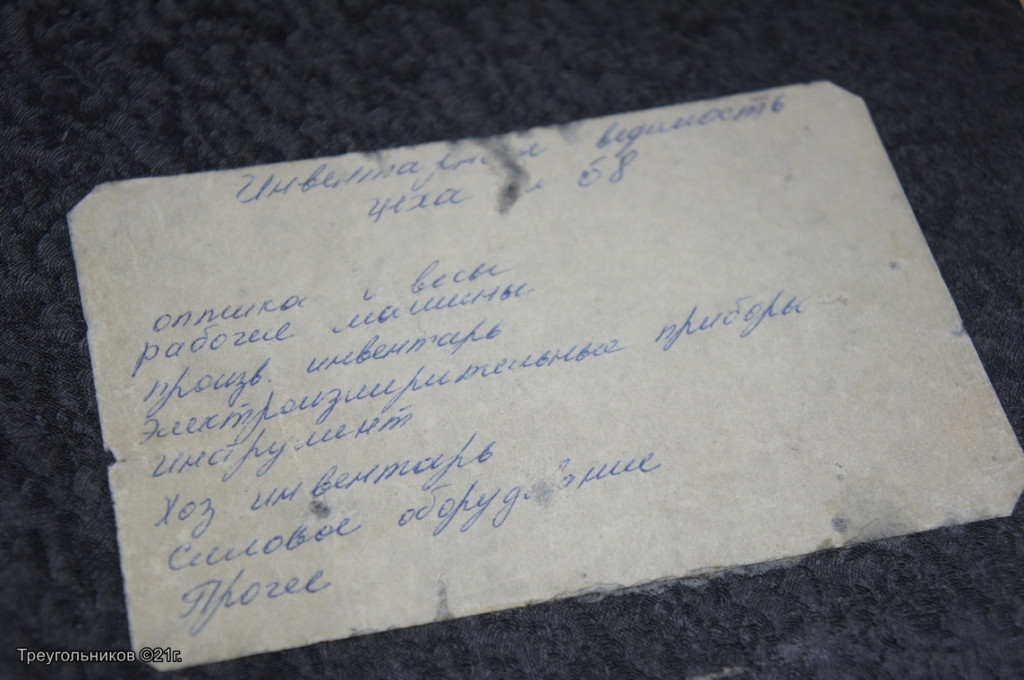 Инвентарная ведомость
цеха 58
оптика и весы
рабочие машины
произв. инвентарь
Электроизмирительные приборы
инструмент
Хоз инвентарь
Силовое оборудование
Прочее
Треугольников ©21г.